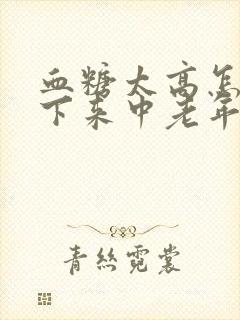 血糖太高怎
下来中老年
青丝霓裳